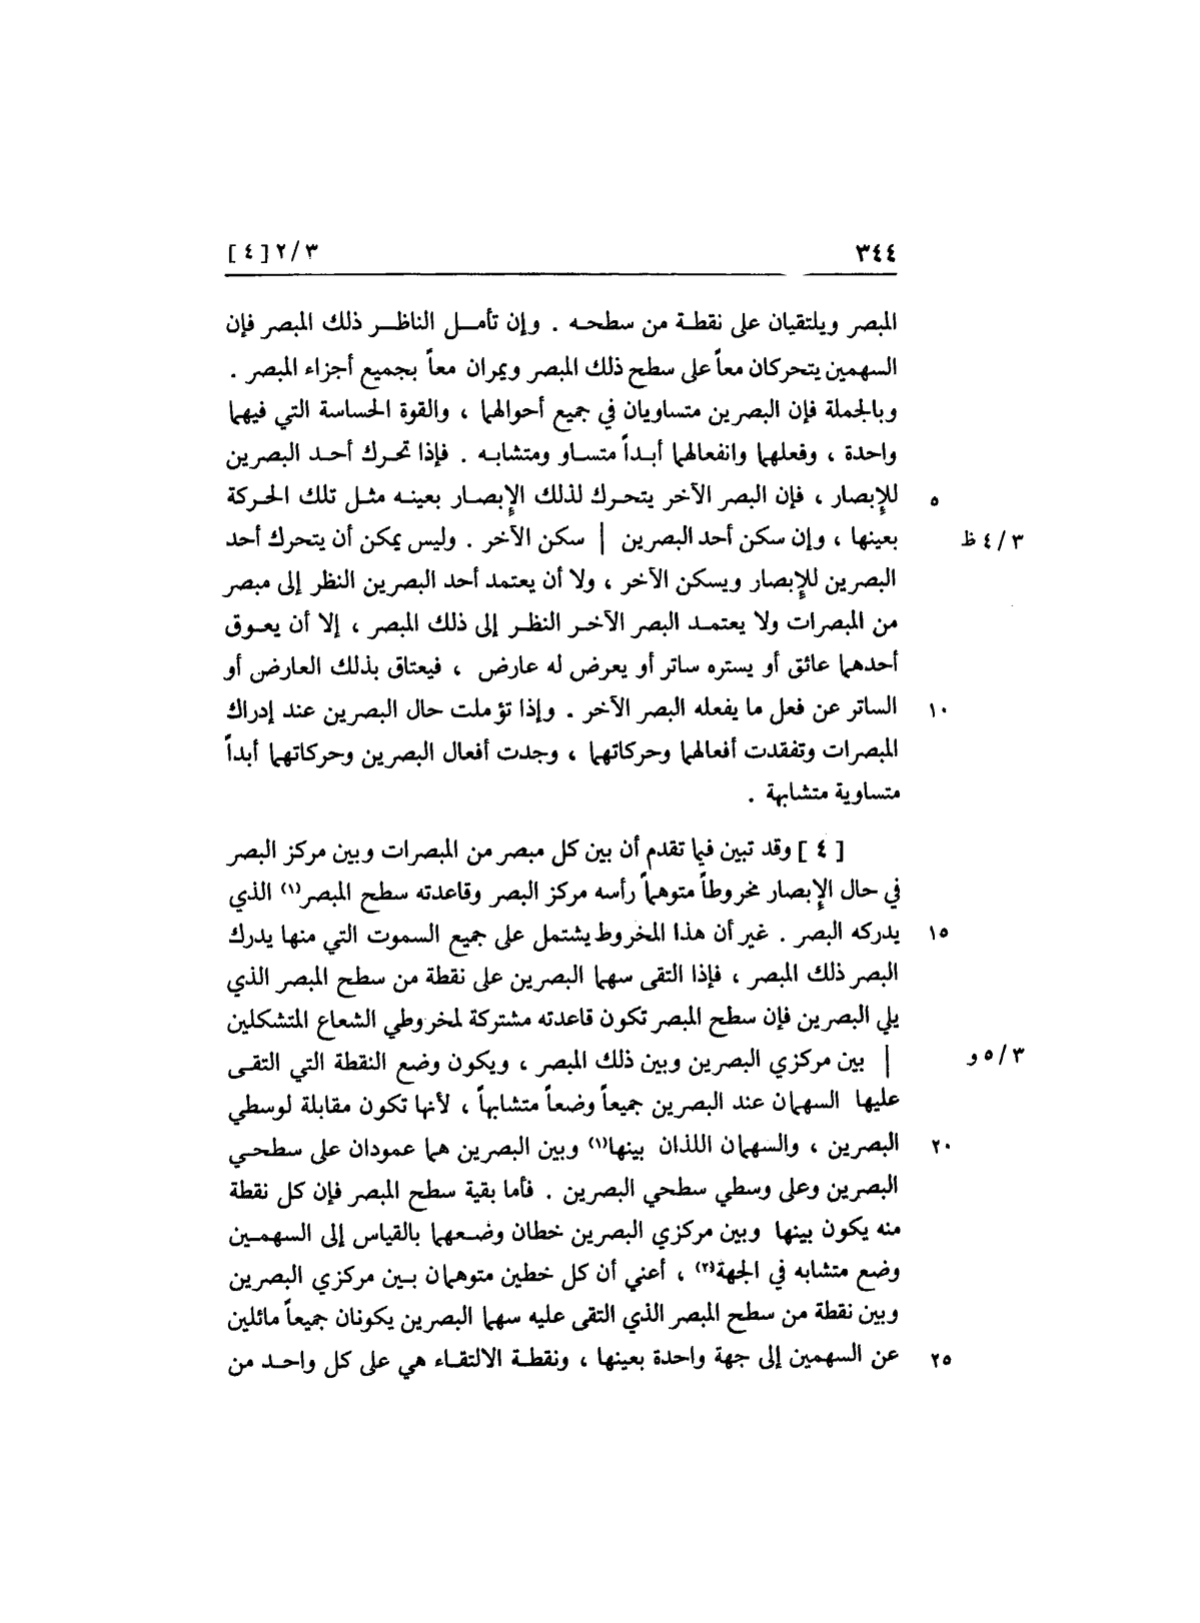 ٣٤٤
٢/٣ [ ٤ ]
المبصر ويلتقيان على نقطة من سطحه . وإن تأمل الناظر ذلك المبصر فإن
السهمين يتحركان معاً على سطح ذلك المبصر ويمران معاً بجميع أجزاء المبصر .
وبالجملة فإن البصرين متساويان في جميع أحوالهما ، والقوة الحساسة التي فيهما
واحدة ، وفعلهما وانفعالهما أبداً متساو ومتشابه . فإذا تحرك أحد البصرين
للإبصار ، فإن البصر الآخر يتحرك لذلك الإبصار بعينه مثل تلك الحركة
٥
بعينها ، وإن سكن أحد البصرين | سكن الآخر . وليس يمكن أن يتحرك أحد
٤/٣ ظ
البصرين للإبصار ويسكن الآخر ، ولا أن يعتمد أحد البصرين النظر إلى مبصر
من المبصرات ولا يعتمد البصر الآخر النظر إلى ذلك المبصر ، إلا أن يعوق
أحدهما عائق أو يستره ساتر أو يعرض له عارض ، فيعتاق بذلك العارض أو
الساتر عن فعل ما يفعله البصر الآخر . وإذا تؤملت حال البصرين عند إدراك
١٠
المبصرات وتفقدت أفعالهما وحركاتهما ، وجدت أفعال البصرين وحركاتهما أبداً
متساوية متشابهة .
[ ٤ ] وقد تبين فيما تقدم أن بين كل مبصر من المبصرات وبين مركز البصر
في حال الإبصار مخروطاً متوهماً رأسه مركز البصر وقاعدته سطح المبصر(١) الذي
يدركه البصر . غير أن هذا المخروط يشتمل على جميع السموت التي منها يدرك
١٥
البصر ذلك المبصر ، فإذا التقى سهما البصرين على نقطة من سطح المبصر الذي
يلي البصرين فإن سطح المبصر تكون قاعدته مشتركة لمخروطي الشعاع المتشكلين
| بين مركزي البصرين وبين ذلك المبصر ، ويكون وضع النقطة التي التقى
٥/٣ و
عليها السهمان عند البصرين جميعاً وضعاً متشابهاً ، لأنها تكون مقابلة لوسطي
البصرين ، والسهمان اللذان بينها(١) وبين البصرين هما عمودان على سطحي
٢٠
البصرين وعلى وسطي سطحي البصرين . فأما بقية سطح المبصر فإن كل نقطة
منه يكون بينها وبين مركزي البصرين خطان وضعهما بالقياس إلى السهمين
وضع متشابه في الجهة(٢) ، أعني أن كل خطين متوهمان بين مركزي البصرين
وبين نقطة من سطح المبصر الذي التقى عليه سهما البصرين يكونان جميعاً مائلين
عن السهمين إلى جهة واحدة بعينها ، ونقطة الالتقاء هي على كل واحد من
٢٥